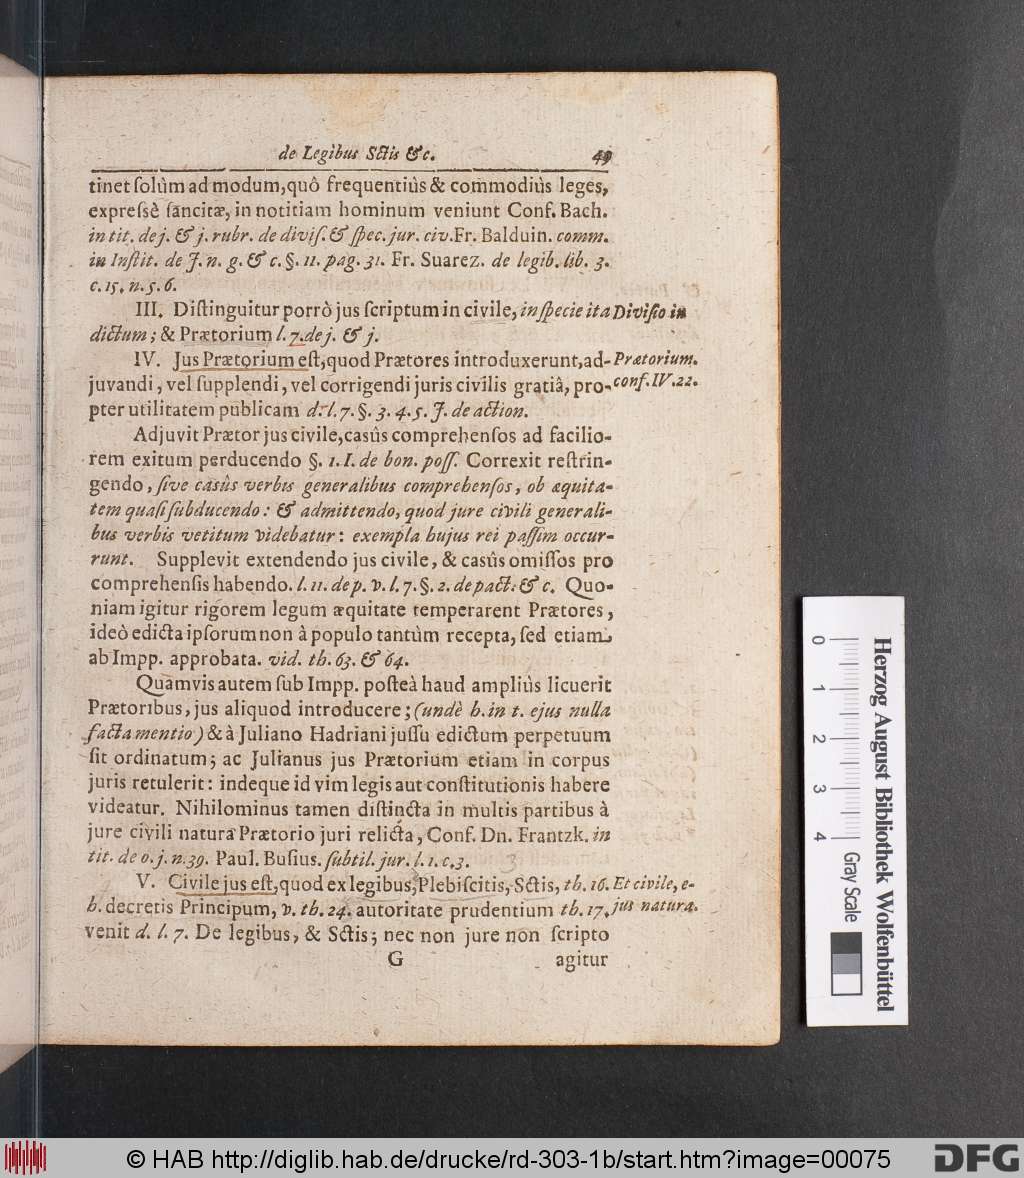 de Legibus Sctis &c. 49
tinet ſolùm ad modum, quô frequentiùs & commodiùs leges,
expreſsè ſancitæ, in notitiam hominum veniunt Conf. Bach.
in tit. de j. & j. rubr. de diviſ. & ſpec. jur. civ. Fr. Balduin. comm.
in Inſtit. de J. n. g. & c. §. 11. pag. 31. Fr. Suarez. de legib. lib. 3.
c. 15. n. 5. 6.
III. Diſtinguitur porrò jus ſcriptum in civile, in ſpecie ita
dictum; & Prætorium l. 7. de j. & j.
Diviſio in
Prætorium.
conf. IV. 22.
IV. Jus Prætorium eſt, quod Prætores introduxerunt, ad-
juvandi, vel ſupplendi, vel corrigendi juris civilis gratiâ, pro-
pter utilitatem publicam d. l. 7. §. 3. 4. 5. J. de action.
Adjuvit Prætor jus civile, casûs comprehenſos ad facilio-
rem exitum perducendo §. 1. I. de bon. poſſ. Correxit reſtrin-
gendo, ſive casûs verbis generalibus comprehenſos, ob æquita-
tem quaſi ſubducendo: & admittendo, quod jure civili generali-
bus verbis vetitum videbatur: exempla hujus rei paſſim occur-
runt. Supplevit extendendo jus civile, & casûs omiſſos pro
comprehenſis habendo. l. 11. de p. v. l. 7. §. 2. de pact. & c. Quo-
niam igitur rigorem legum æquitate temperarent Prætores,
ideò edicta ipſorum non à populo tantùm recepta, ſed etiam
ab Impp. approbata. vid. th. 63. & 64.
Quamvis autem ſub Impp. poſteà haud ampliùs licuerit
Prætoribus, jus aliquod introducere; (undè h. in t. ejus nulla
facta mentio) & à Juliano Hadriani juſſu edictum perpetuum
ſit ordinatum; ac Julianus jus Prætorium etiam in corpus
juris retulerit: indeque id vim legis aut conſtitutionis habere
videatur. Nihilominus tamen diſtincta in multis partibus à
jure civili natura Prætorio juri relicta, Conf. Dn. Frantzk. in
tit. de o. j. n. 39. Paul. Buſius. ſubtil. jur. l. 1. c. 3.
V. Civile jus eſt, quod ex legibus, Plebiſcitis, Sctis, th. 16.
h. decretis Principum, v. th. 24. autoritate prudentium th. 17.
venit d. l. 7. De legibus, & Sctis; nec non jure non ſcripto
Et civile, e-
jus natura.
G agitur
0 1 2 3 4
Gray Scale
Herzog August Bibliothek Wolfenbüttel
© HAB http://diglib.hab.de/drucke/rd-303-1b/start.htm?image=00075
DFG